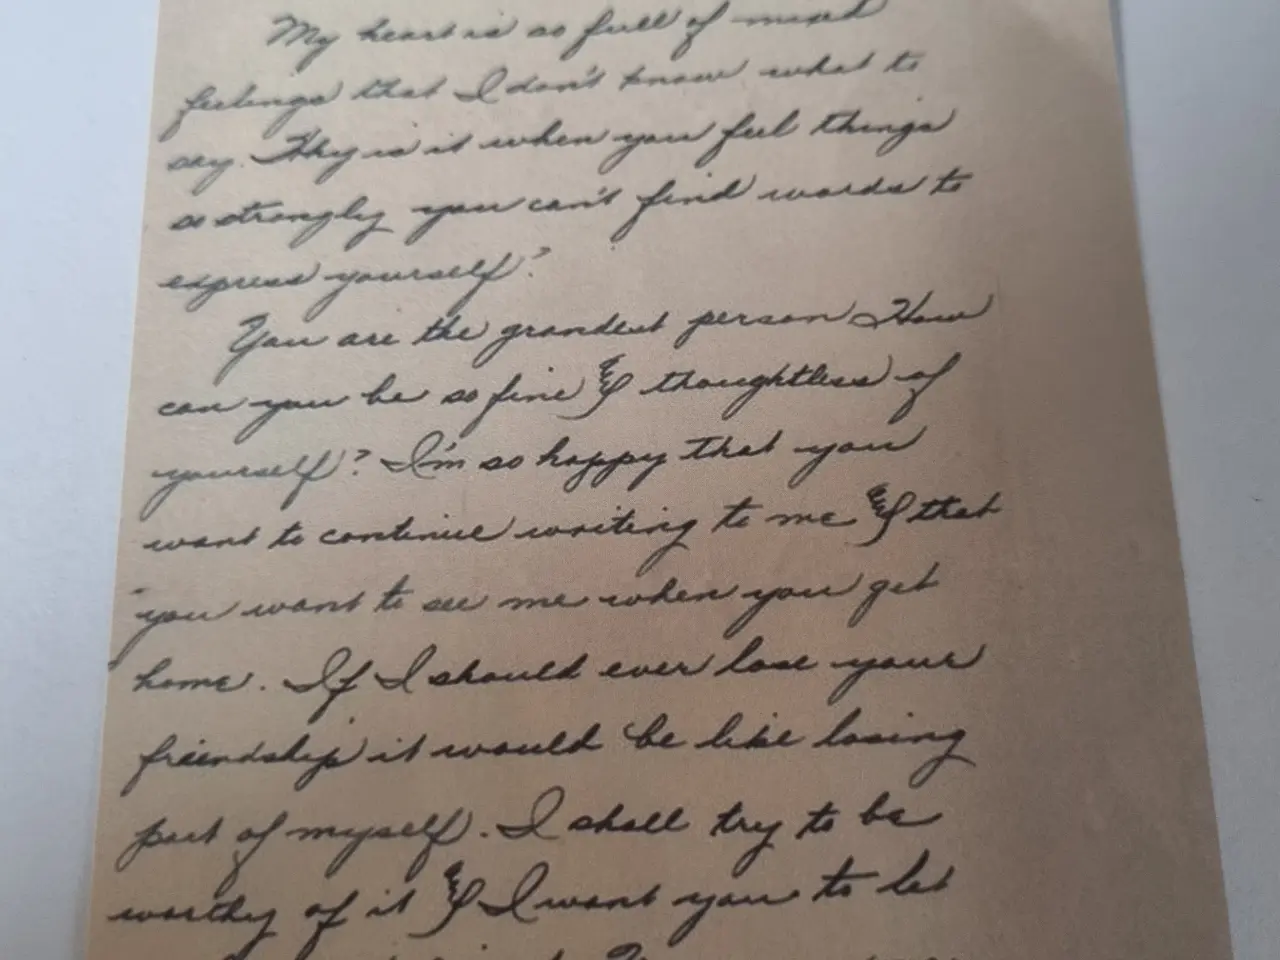 My heart is so full of mixed
feelings that I don't know what to
say. Why is it when you feel things
so strongly you can't find words to
express yourself?
You are the grandest person How
can you be so fine & thoughtless of
yourself? I'm so happy that you
want to continue writing to me & that
you want to see me when you get
home. If I should ever lose your
friendship it would be like losing
part of myself. I shall try to be
worthy of it & I want you to let